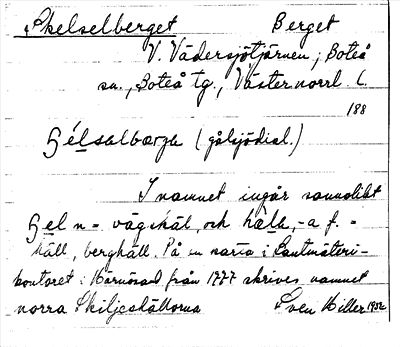 Skelselberget Berget
V. Vädersjötjärnen, Boteå
sn., Boteå tg., Västernorrl L
188
(gålsjödial.)
I namnet ingår sannolikt
n = vägskäl, och -a f. =
häll, berghäll. På en karta i Lantmäteri-
kontoret i Härnösand från 1777 skrives namnet
norra Skiljeshällorna Sven Hiller 1932